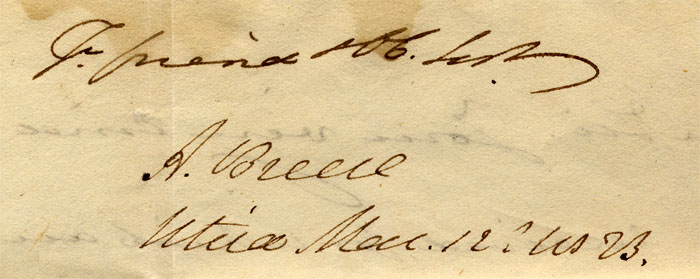 Yr. friend & Ob. Sert
A. Breese
Utica Mar. 12th 1823.